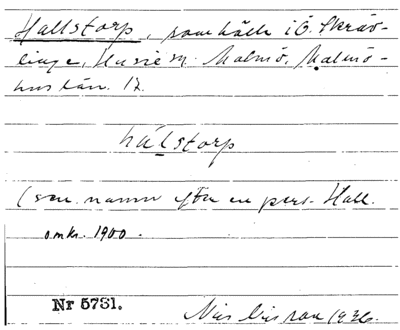 Hallstorp, samhälle i Ö. Skräv-
linge, Husie sn. Malmö, Malmö-
hus län. 12.
hálstorp
(sen. namn efter en pers. Hall.
omkr. 1900.
Nr 5731.
Nils Nilsson 1936.